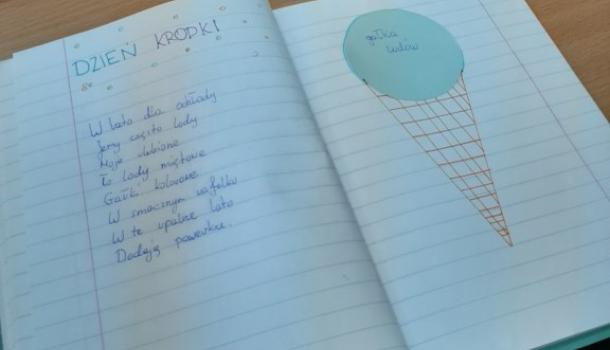 DZIEŃ KROPKI
W lato dla ochłody
Jemy często lody
Moje ulubione
To lody miętowe
Gałki kolorowe
W smacznym wafelku
W te upalne lato
Dodają powerku.
gałka
lodów